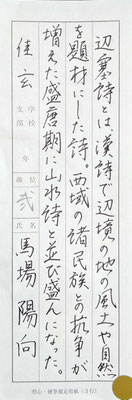 辺塞詩とは、漢詩で辺境の地の風土や自然
を題材にした詩。西域の諸民族との抗争が
増えた盛唐期に山水詩と並び盛んになった。
支部 学校 佳玄 年 級位 弐 氏名 馬場陽向
硬筆検定用紙(3行)